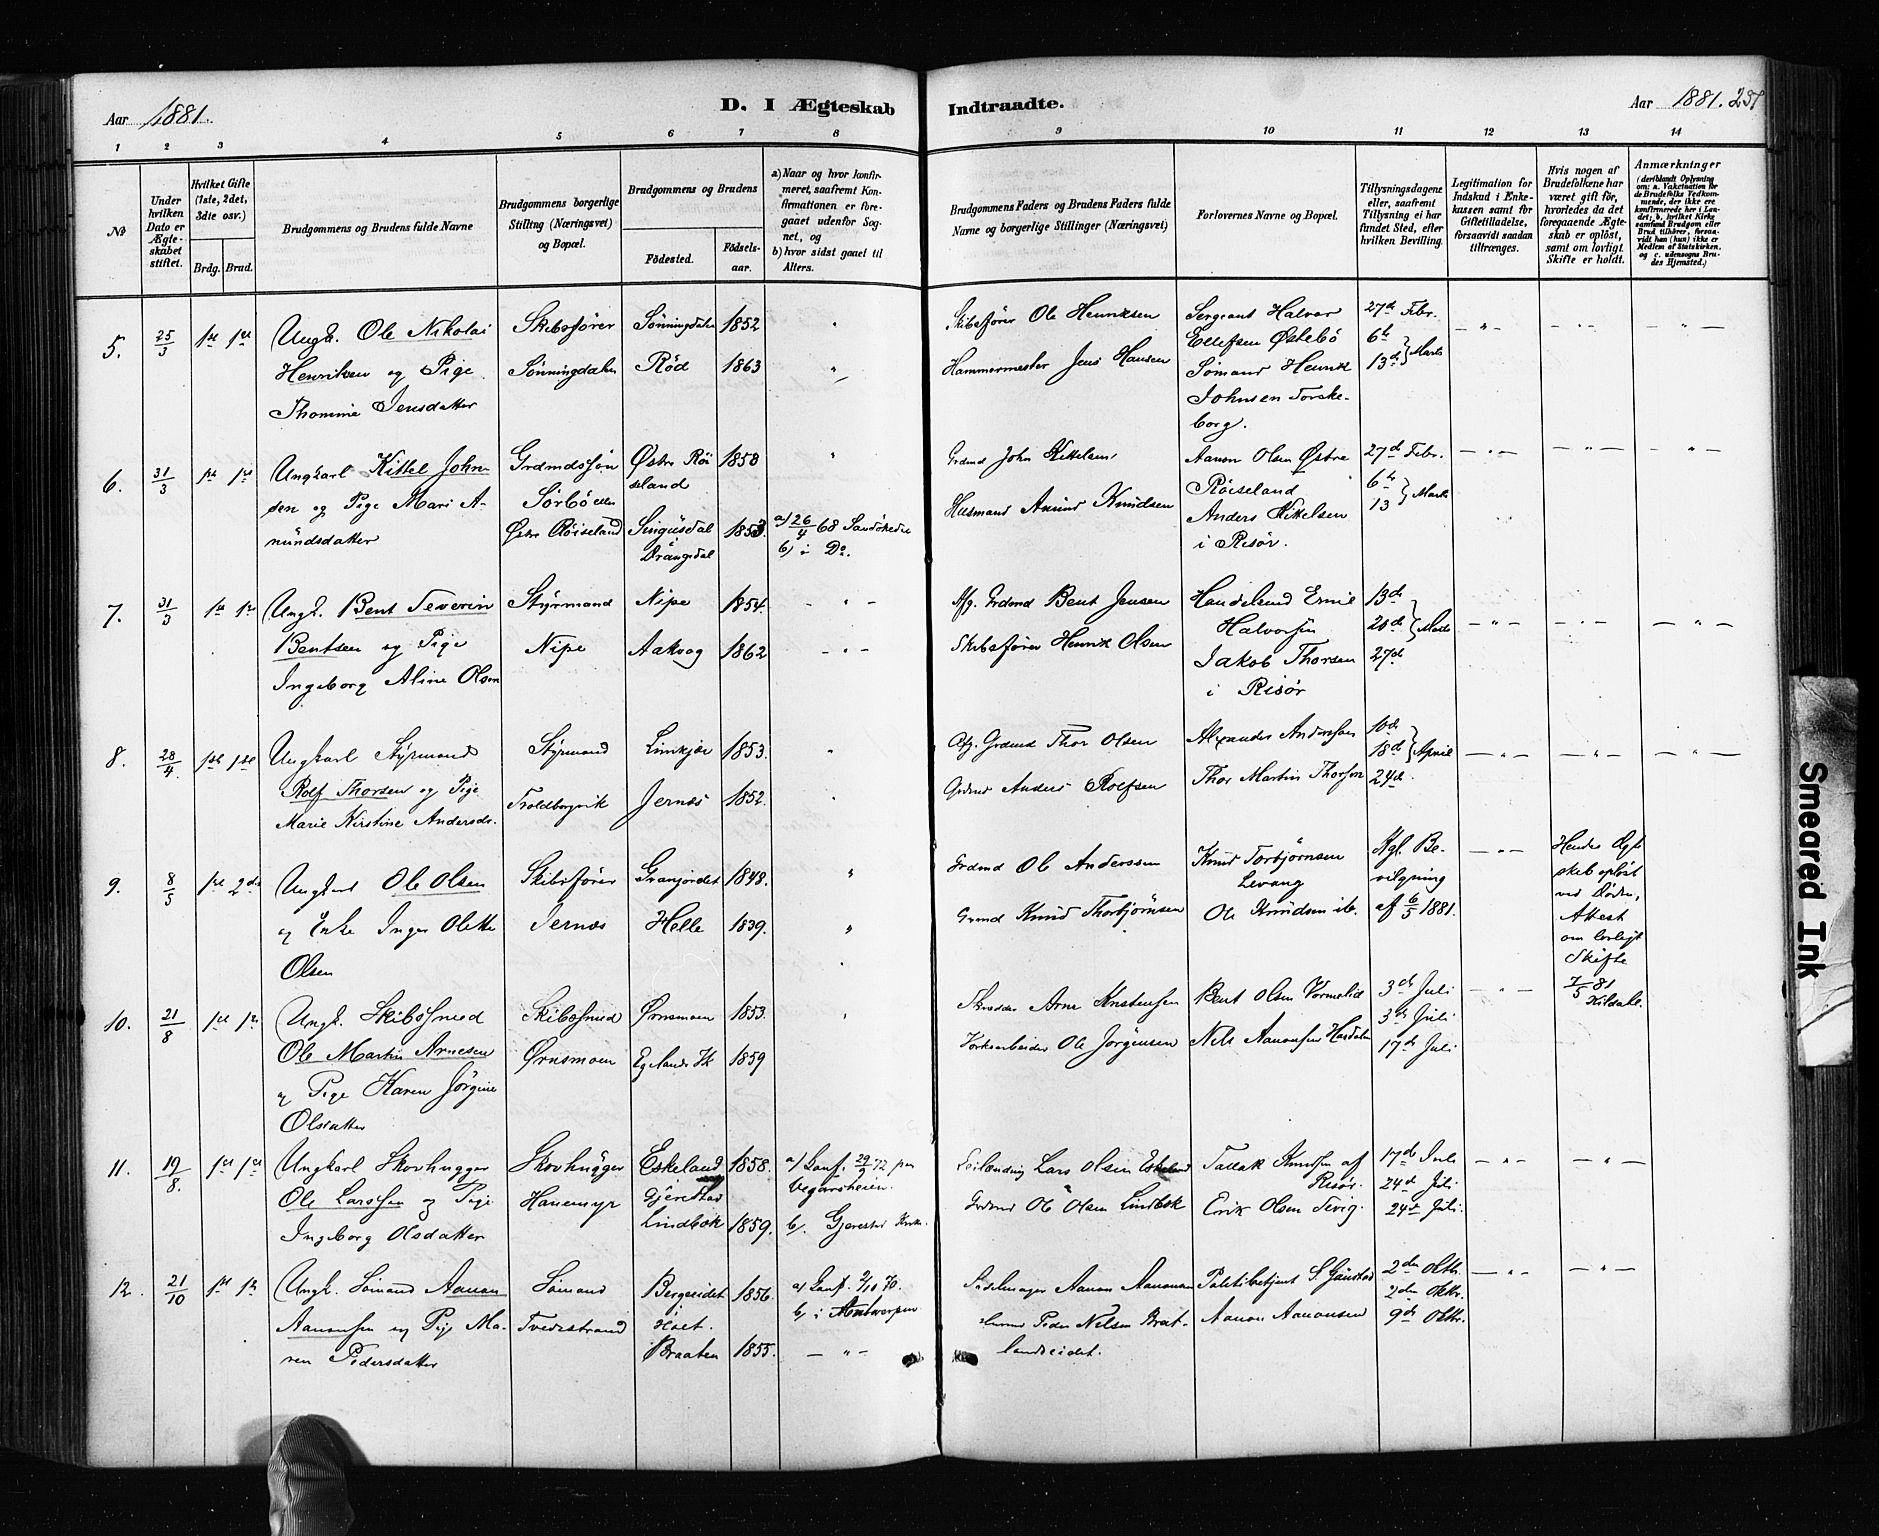 Aar 1881.
D. I Ægteskab Indtraadte.
Aar 1881. 257
1 2 3 4 5 6 7 8 9 10 11 12 13 14
No
Under hvilken Dato er Ægteskabet stiftet.
Hvilket Gifte (1ste, 2det, 3die osv.)
Brdg. Brud.
Brudgommens og Brudens fulde Navne
Brudgommens borgerlige Stilling (Næringsvei) og Bopæl.
Brudgommens og Brudens
Födested.
Födselsaar.
a) Naar og hvor konfirmeret, saafremt Konfirmationen er foregaaet udenfor Sognet, og
b) hvor sidst gaaet til Alters.
Brudgommens Faders og Brudens Faders fulde Navne og borgerlige Stillinger (Næringsvei)
Forlovernes Navne og Bopæl.
Tillysningsdagene eller, saafremt Tillysning ei har fundet Sted, efter hvilken Bevilling.
Legitimation for Indskud i Enkekassen samt for Giftetilladelse, forsaavidt saadan tiltrænges.
Hvis nogen af Brudefolkene har været gift för, hvorledes da det foregaaende Ægteskab er oplöst, samt om lovligt Skifte er holdt.
Anmærkninger
(deriblandt Oplysning om: a. Vakcination for de Brudefolks Vedkommende, der ikke ere konfirmerede her i Landet; b. hvilket Kirkesamfund Brudgom eller Brud tilhører, forsaavidt han (hun) ikke er Medlem af Statskirken, og c. udensogns Brudes Hjemsted.)
5. 25/3 1ste 1ste
Ungk. Ole Nikolai
Henriksen og Pige
Thomine Jensdatter
Skibsfører
Sønningdalen
Sønningdalen 1852
Röd 1863
Skibsfører Ole Henriksen
Hammermester Jens Hansen
Sergeant Halvor
Ellefsen Østebö
Sömand Henrik
Johnsen Torskeborg.
27de Febr.
6te
13de } Marts
6. 31/3 1ste 1ste
Ungkarl Kittel Johnsen
og Pige Mari Amundsdatter
Grdmdssön
Sörbö eller
Østre Röiseland
Østre Röiseland 1858
Singusdal i Drangedal 1853
a) 26/4 68 Sandökedal
b) i Do.
Grdmd John Kittelsen
Husmand Amund Knudsen
Aanon Olsen Østre
Röiseland
Anders Kittelsen
i Risör.
27de Febr.
6te
13 } Marts
7. 31/3 1ste 1ste
Ungk. Bent Severin
Bentsen og Pige
Ingeborg Aline Olsen
Styrmand
Nipe
Nipe 1854.
Aakvog 1862
Afg. Grdmd Bent Jensen
Skibsfører Henrik Olsen
Handelsmd Emil
Halvorsen
Jakob Thorsen
i Risör
13de
20de } Marts
27de
8. 28/4. 1ste 1ste
Ungkarl Styrmand
Rolf Thorsen og Pige
Marie Kirstine Andersdr.
Styrmand
Troldbergvik
Limkjær 1853.
Jernæs 1852.
Afg. Grdmd Thor Olsen
Grdmd Anders Rolfsen
Alexander Anderssen
Thor Martin Thorsen
10de
18de } April
24de
9. 8/5 1ste 2de
Ungkarl Ole Olsen
og Enke Inger Olette
Olsen
Skibsfører
Jernæs
Granjordet 1848.
Helle 1839.
Grdmd Ole Anderssen
Grdmd Knud Thorbjørnsen
Knud Torbjörnsen
Levang
Ole Knudsen ib.
Kgl. Bevilgning
af 6/5 1881.
Hendes Ægteskab oplöst
ved Döden,
Attest
om lovligt
Skifte
7/5 81
Kildahl.
10. 21/8 1ste 1ste
Ungk. Skibssmed
Ole Martin Arnesen
og Pige Karen Jörgine
Olsdatter
Skibssmed
Ørnsmoen
Ørnsmoen 1853.
Egelands Vk 1859
Skrædder Arne Kristensen
Værksarbeider Ole Jørgensen
Bent Olsen Vormelid
Nils Aanonsen Hasdalen
3de Juli
3de Juli
17de Juli
11. 19/8. 1ste 1ste
Ungkarl Skovhugger
Ole Larssen og Pige
Ingeborg Olsdatter
Skovhugger
Hanemyr
Eskeland
Gjerestad 1858.
Lindbök 1859.
a) Konf. 29/9 72 paa
Vegarsheien.
b). Gjerestad Kirke.
Leilænding Lars Olsen Eskeland
Grdmd Ole Olsen Lindbök
Tallak Knudsen af
Risör.
Erik Olsen Tevig.
17de Juli
24de Juli
24de Juli.
12. 21/10 1ste 1ste
Ungk. Sömand Aanon
Aanonsen og Pige Maren
Pedersdatter
Sömand
Tvedestrand
Bergseidet
Holt. 1856.
Braaten 1855.
a) Konf. 2/10 70.
b) i Antwerpen
Sadelmager Aanon Aanonsen
Husmd Peder Nelsen Bratlandseidet.
Politibetjent S. Gjönstad
Aanon Aanonsen
2den Oktbr.
2den Oktbr.
9de Oktbr.
Smeared Ink